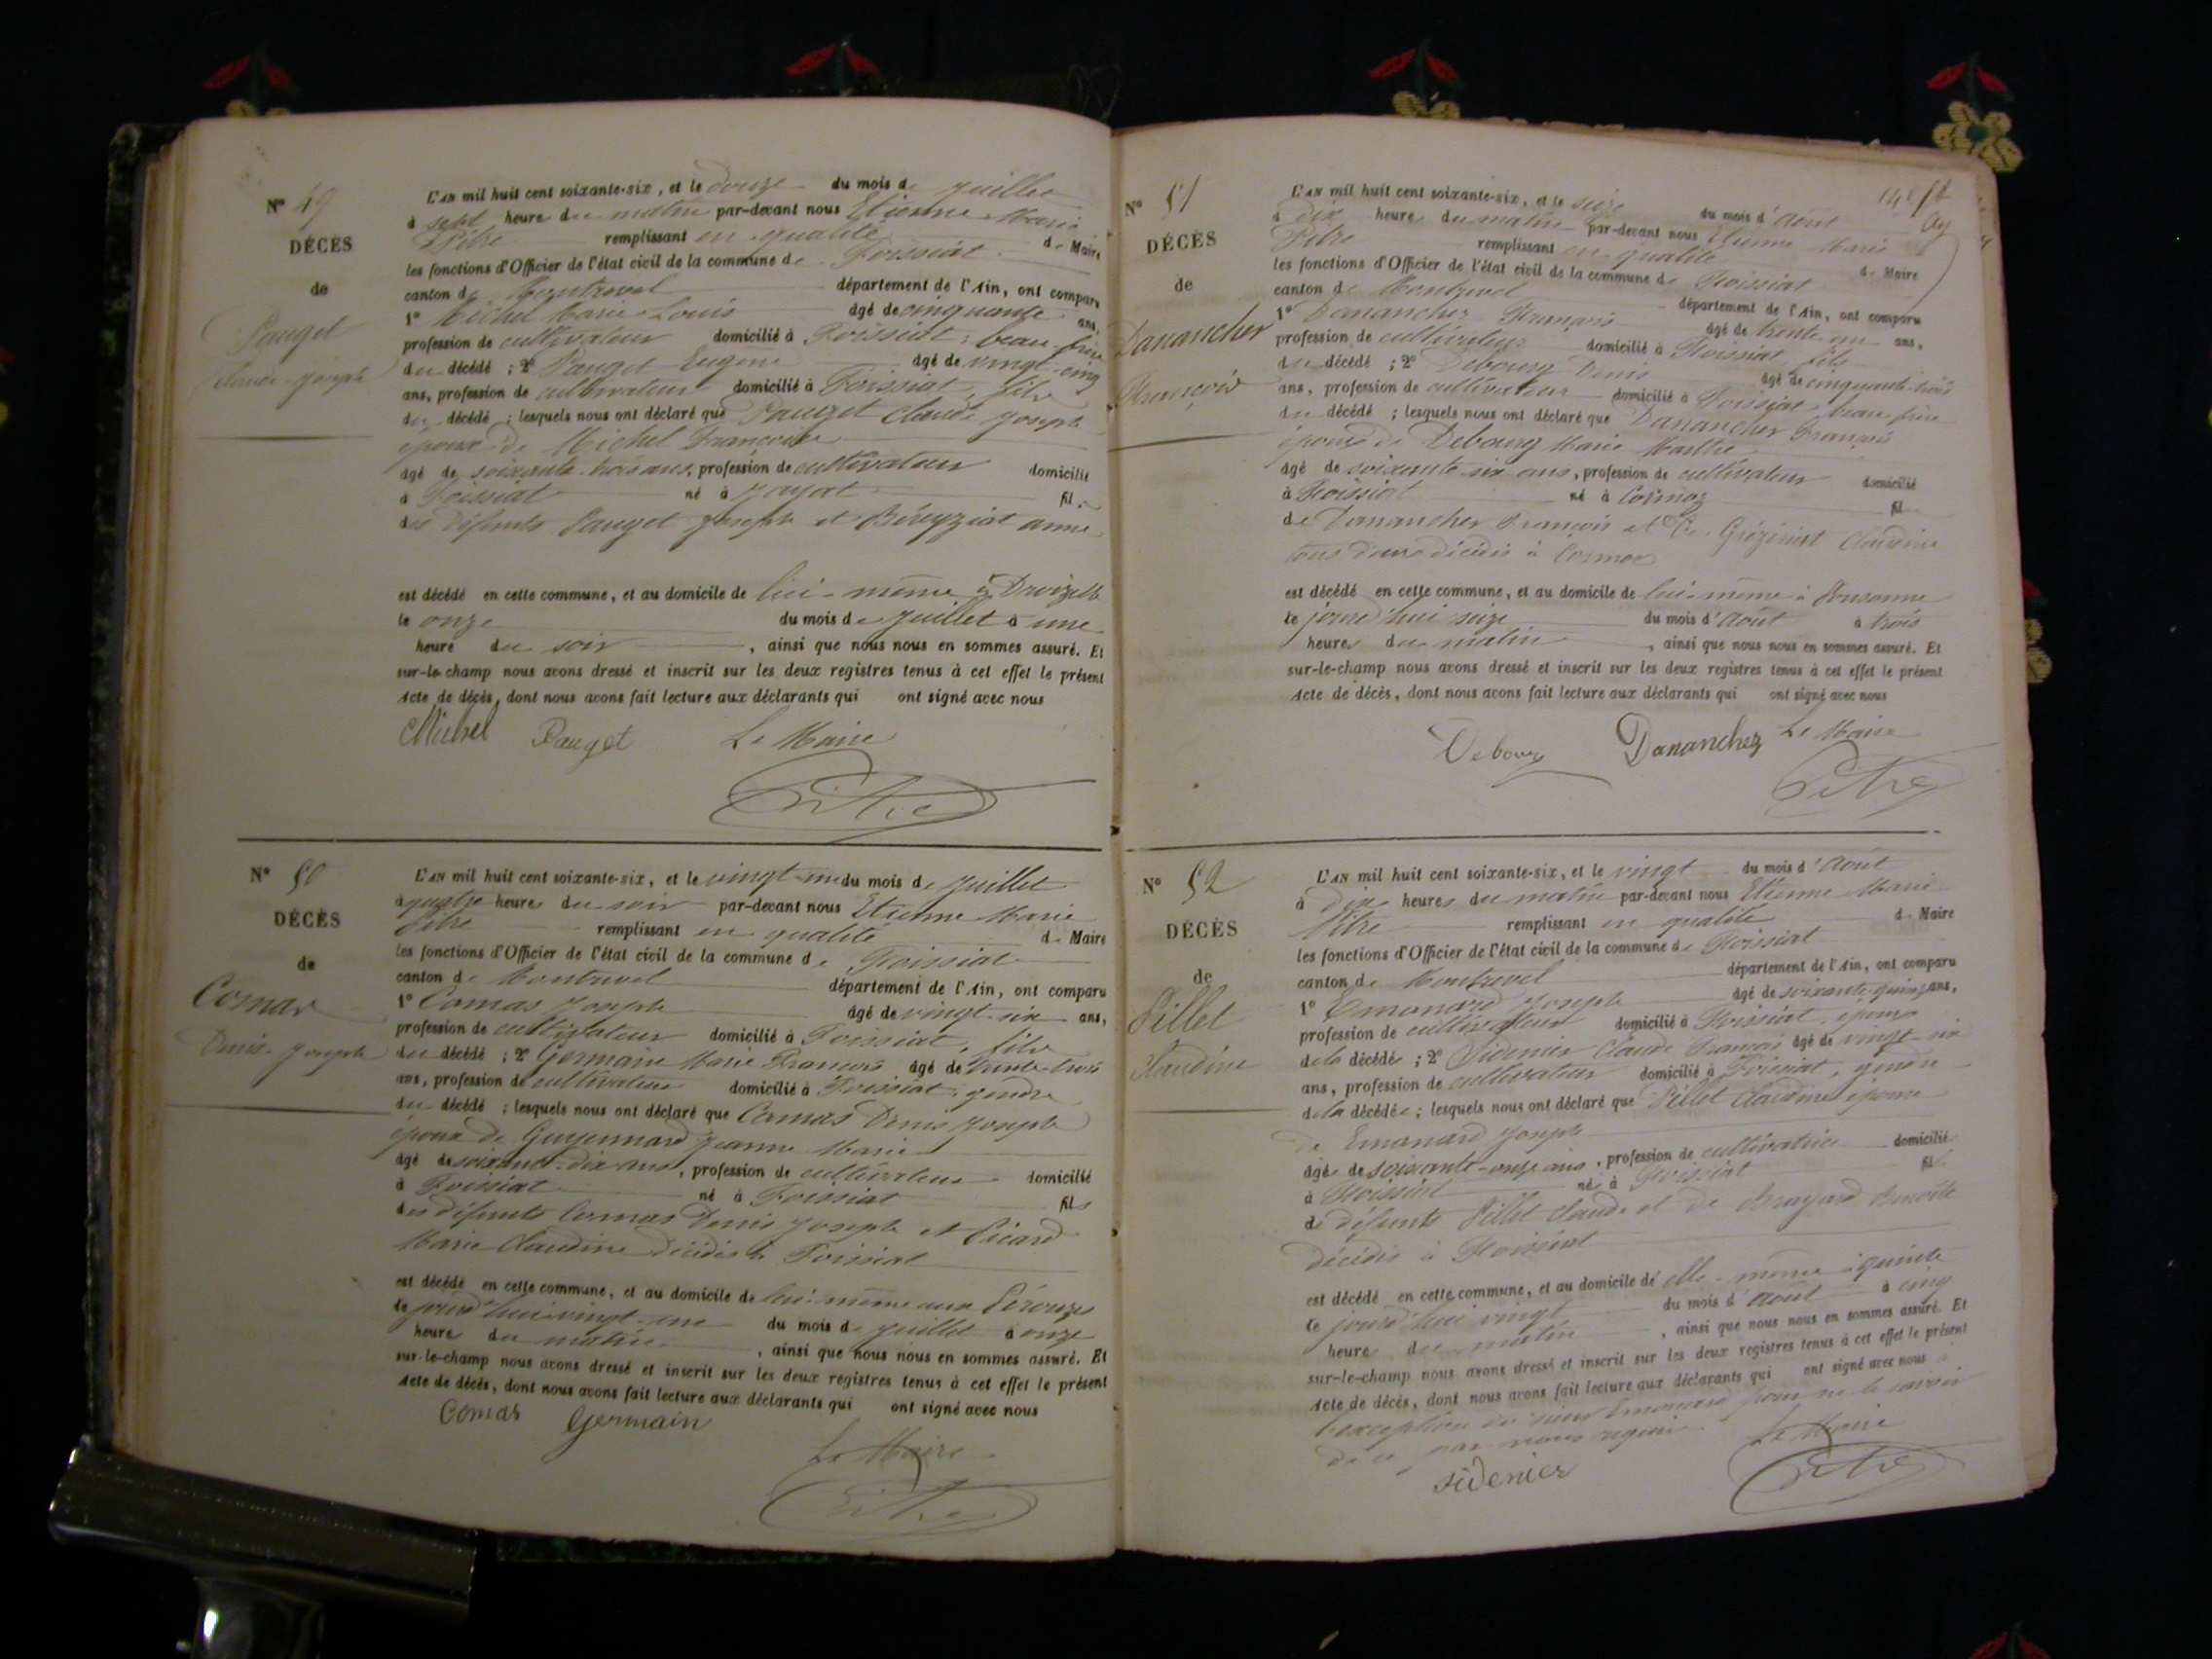 N° 49
DÉCÈS
de
Pauget
Claude Joseph
L'AN mil huit cent soixante-six, et le douze du mois de juillet
à sept heure du matin par-devant nous Etienne Marie
Pitre remplissant en qualité de Maire
les fonctions d'Officier de l'état civil de la commune de Foissiat
canton de Montrevel département de l'Ain, ont comparu
1° Michel Marie Louis âgé de cinquante ans,
profession de cultivateur domicilié à Foissiat, beau-frère
du décédé ; 2° Pauget Eugène âgé de vingt-cinq
ans, profession de cultivateur domicilié à Foissiat, fils
du décédé ; lesquels nous ont déclaré que Pauget Claude Joseph
époux de Michel Françoise
âgé de soixante-trois ans, profession de cultivateur domicilié
à Foissiat né à Jayat fils
des défunts Pauget Joseph et Béreyziat Anne
est décédé en cette commune, et au domicile de lui-même à
le onze du mois de juillet à une
heure du soir, ainsi que nous nous en sommes assuré. Et
sur-le-champ nous avons dressé et inscrit sur les deux registres tenus à cet effet le présent
Acte de décès, dont nous avons fait lecture aux déclarants qui ont signé avec nous
Michel Pauget Le Maire
Pitre
N° 50
DÉCÈS
de
Comas
Denis Joseph
L'AN mil huit cent soixante-six, et le vingt-un du mois de juillet
à quatre heures du soir par-devant nous Etienne Marie
Pitre remplissant en qualité de Maire
les fonctions d'Officier de l'état civil de la commune de Foissiat
canton de Montrevel département de l'Ain, ont comparu
1° Comas Joseph âgé de vingt-six ans,
profession de cultivateur domicilié à Foissiat, fils
du décédé ; 2° Germain Marie François âgé de trente-trois
ans, profession de cultivateur domicilié à Foissiat, gendre
du décédé ; lesquels nous ont déclaré que Comas Denis Joseph
époux de Guyennard Jeanne Marie
âgé de soixante-dix ans, profession de cultivateur domicilié
à Foissiat né à Foissiat fils
des défunts Comas Denis Joseph et Picard
Marie Claudine décédés à Foissiat
est décédé en cette commune, et au domicile de lui-même aux
le jourd'hui vingt-un du mois de juillet à onze
heure du matin, ainsi que nous nous en sommes assuré. Et
sur-le-champ nous avons dressé et inscrit sur les deux registres tenus à cet effet le présent
Acte de décès, dont nous avons fait lecture aux déclarants qui ont signé avec nous
Comas Germain
Le Maire
Pitre
N° 51
DÉCÈS
de
Danancher
François
L'AN mil huit cent soixante-six, et le seize du mois d'août
à dix heure du matin par-devant nous Etienne Marie
Pitre remplissant en qualité de Maire
les fonctions d'Officier de l'état civil de la commune de Foissiat
canton de Montrevel département de l'Ain, ont comparu
1° Danancher François âgé de trente-un ans,
profession de cultivateur domicilié à Foissiat fils
du décédé ; 2° Debourg Denis âgé de cinquante-trois
ans, profession de cultivateur domicilié à Foissiat, beau-frère
du décédé ; lesquels nous ont déclaré que Danancher François
époux de Debourg Marie Marthe
âgé de soixante-six ans, profession de cultivateur domicilié
à Foissiat né à Cormoz fil
de Danancher François et de Claudine
tous deux décédés à Cormoz
est décédé en cette commune, et au domicile de lui-même à
le jourd'hui seize du mois d'août à trois
heures du matin, ainsi que nous nous en sommes assuré. Et
sur-le-champ nous avons dressé et inscrit sur les deux registres tenus à cet effet le présent
Acte de décès, dont nous avons fait lecture aux déclarants qui ont signé avec nous
Debourg Danancher Le Maire
Pitre
N° 52
DÉCÈS
de
Pillet
Claudine
L'AN mil huit cent soixante-six, et le vingt du mois d'août
à dix heures du matin par-devant nous Etienne Marie
Pitre remplissant en qualité de Maire
les fonctions d'Officier de l'état civil de la commune de Foissiat
canton de Montrevel département de l'Ain, ont comparu
1° Emonard Joseph âgé de soixante-quinze ans,
profession de cultivateur domicilié à Foissiat, époux
de la décédée ; 2° Fidenier Claude François âgé de vingt-six
ans, profession de cultivateur domicilié à Foissiat, gendre
de la décédée ; lesquels nous ont déclaré que Pillet Claudine épouse
de Emonard Joseph
âgée de soixante-onze ans, profession de cultivatrice domicilié
à Foissiat née à Foissiat fil
de défunts Pillet Claude et de Brayard Benoîte
décédés à Foissiat
est décédé en cette commune, et au domicile de elle-même à
le jourd'hui vingt du mois d'août à cinq
heures du matin, ainsi que nous nous en sommes assuré. Et
sur-le-champ nous avons dressé et inscrit sur les deux registres tenus à cet effet le présent
Acte de décès, dont nous avons fait lecture aux déclarants qui ont signé avec nous à
l'exception du sieur Emonard pour ne le savoir
de ce par nous requis. Le Maire
Fidenier Pitre